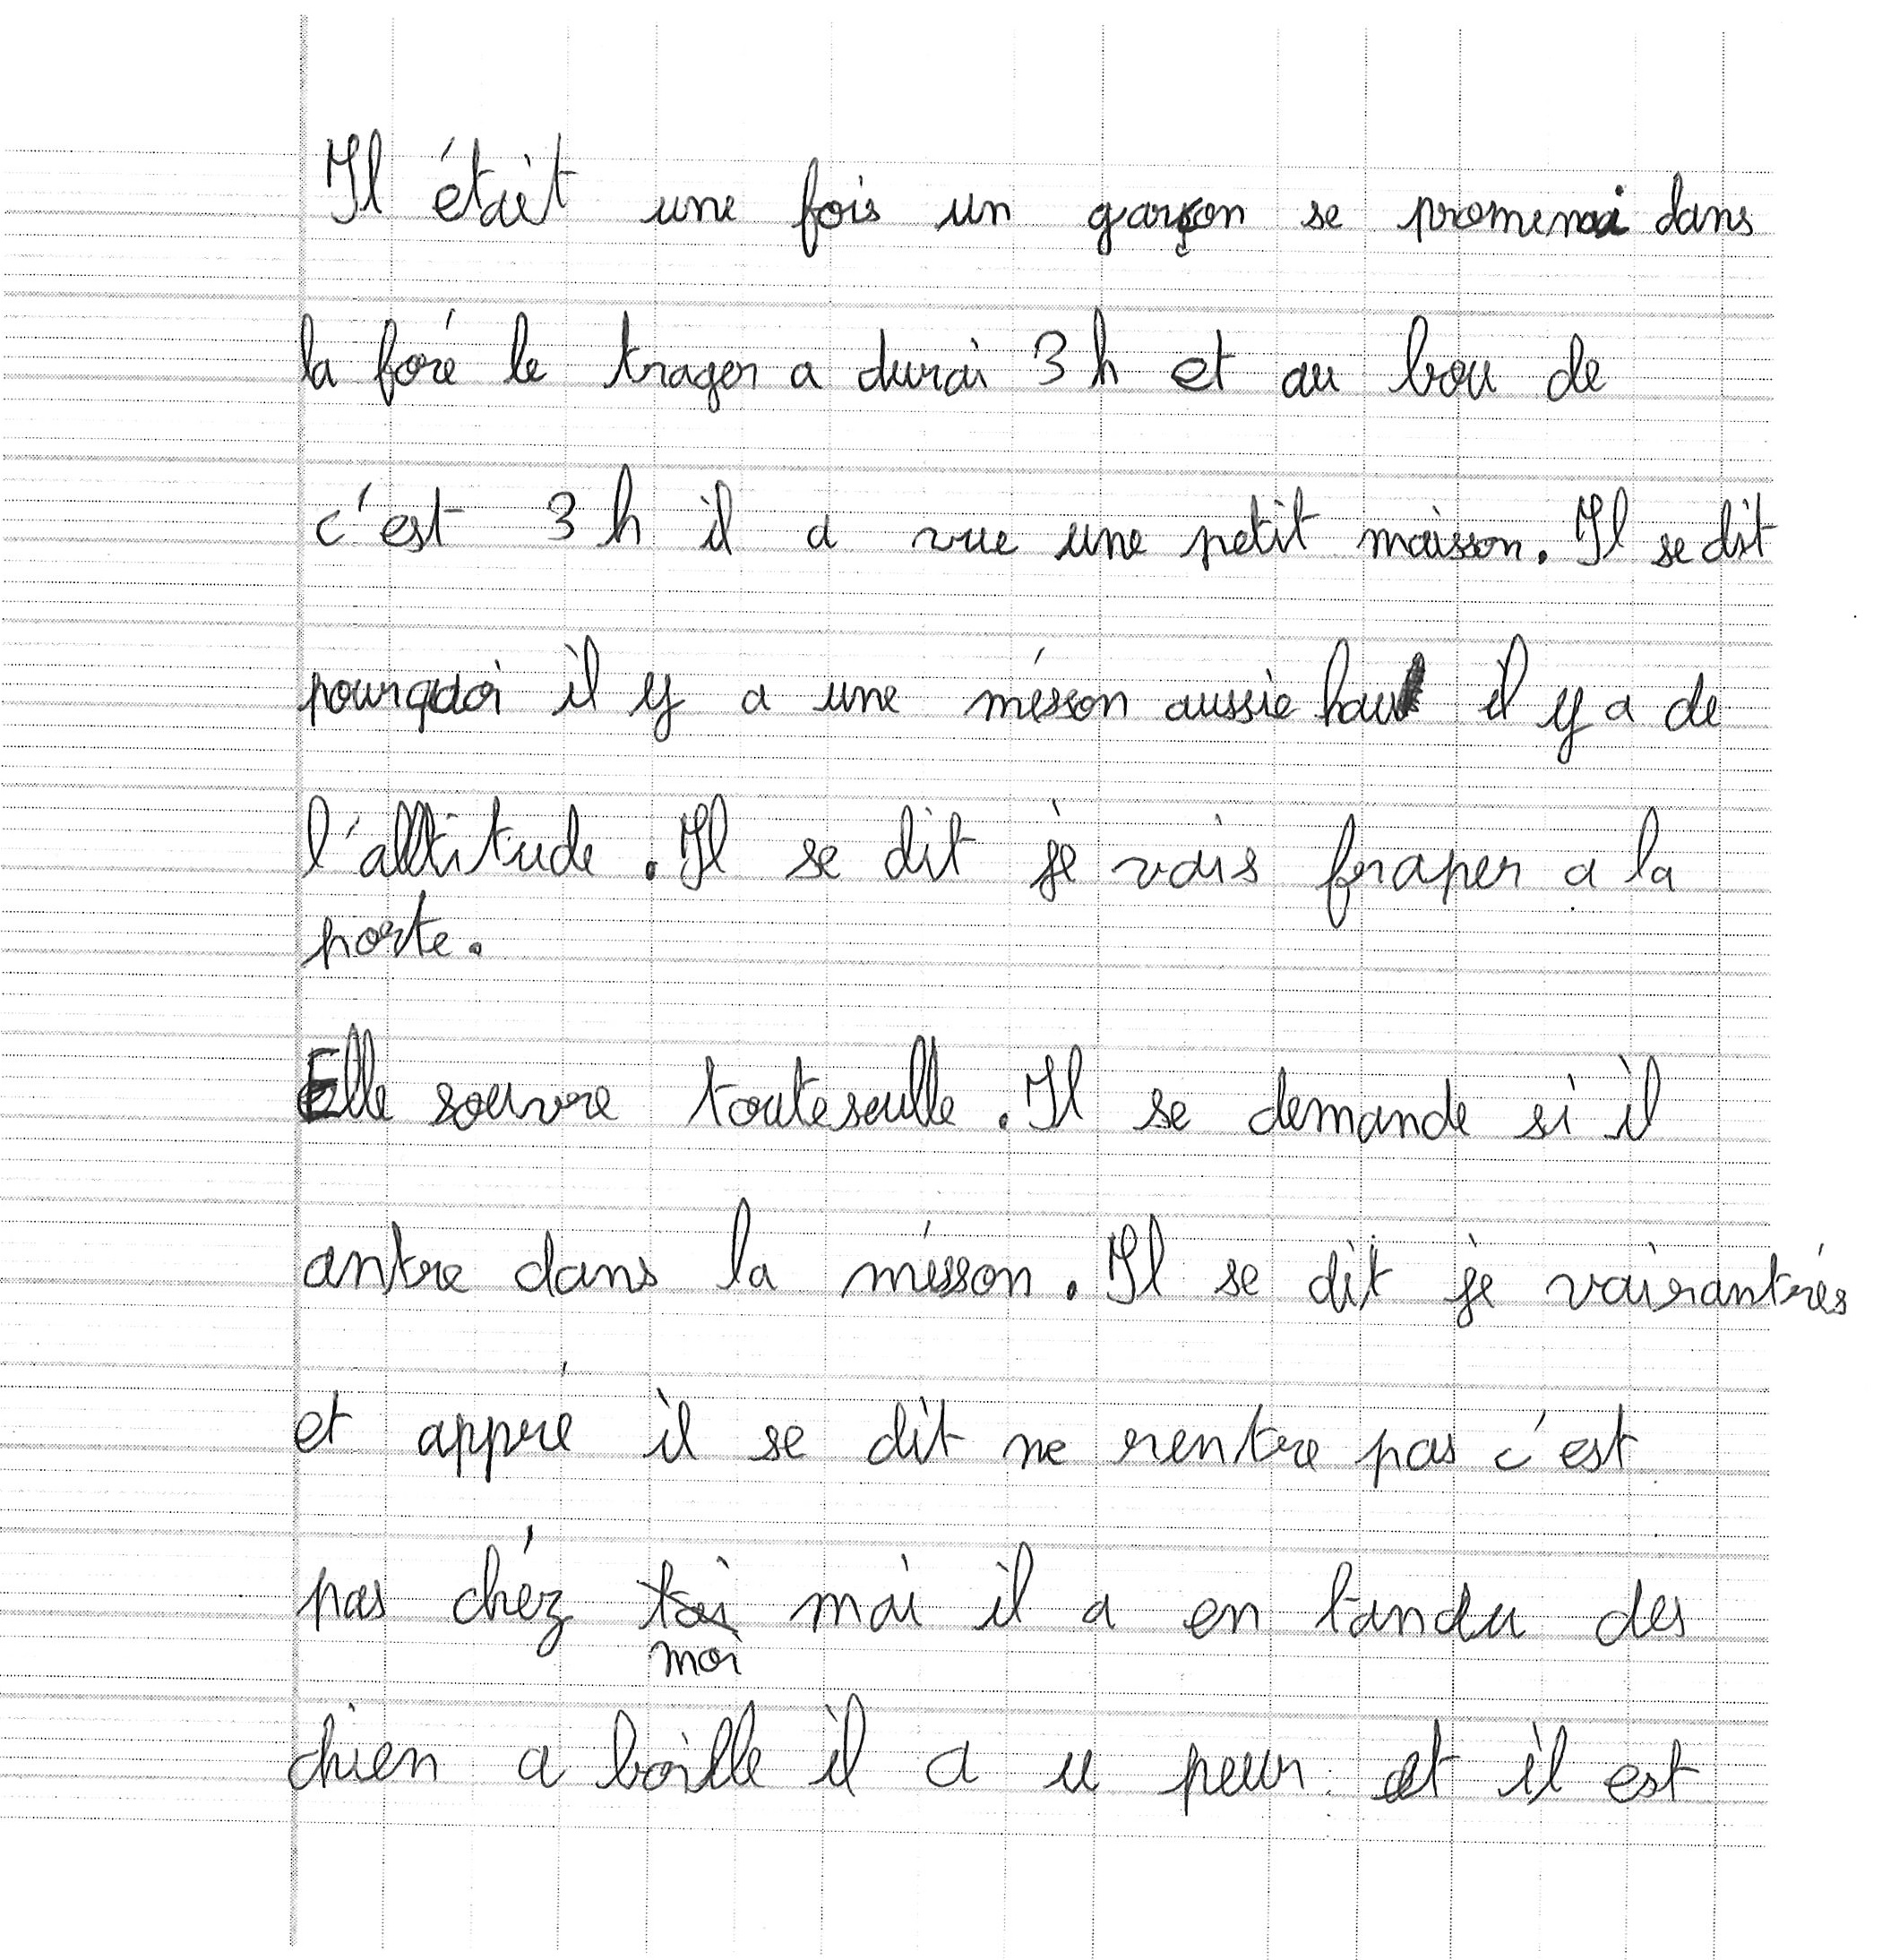 Il était une fois un garçon se promenai dans
la foré le trager a durai 3 h et au bou de
c'est 3 h il a vue une petit maisson. Il se dit
pourquoi il y a une mésson aussie hau il y a de
l'altitude. Il se dit je vais fraper a la
porte.
Elle souvre touteseulle. Il se demande si il
antre dans la mésson. Il se dit je vairantrés
et appré il se dit ne rentre pas c'est
pas chéz toi mai il a en tandu des
moi
chien a boille il a u peur et il est